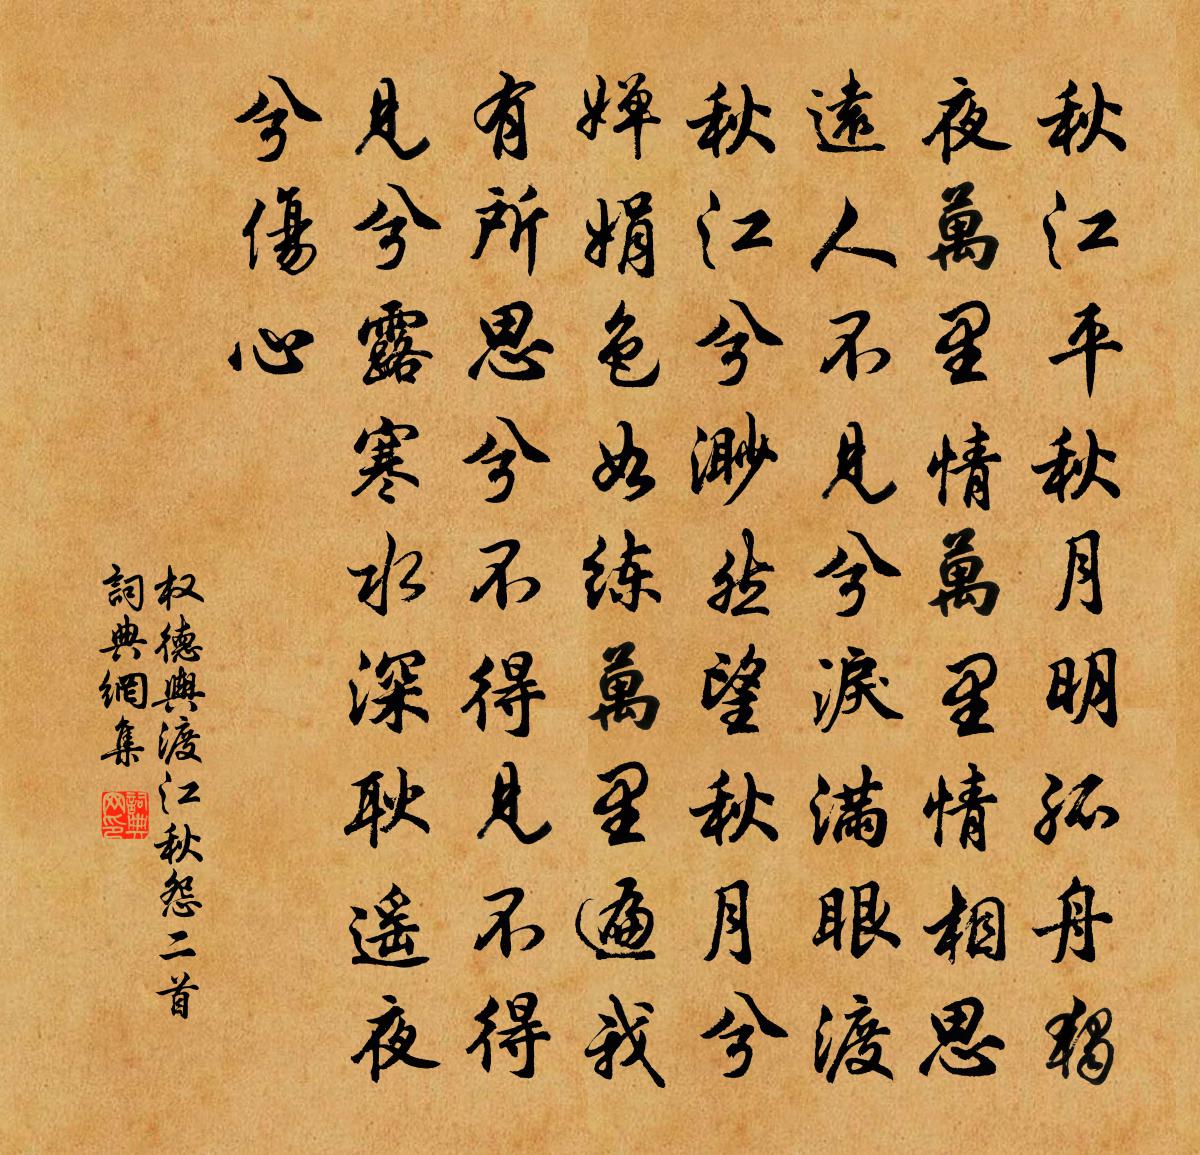 秋江平秋月明孤舟獨
夜萬里情萬里情相思
遠人不見兮淚滿眼渡
秋江兮渺然望秋月兮
嬋娟色如练萬里遍我
有所思兮不得見不得
見兮露寒水深耿遥夜
兮傷心
权德輿渡江秋怨二首
詞典網集
詞典网印